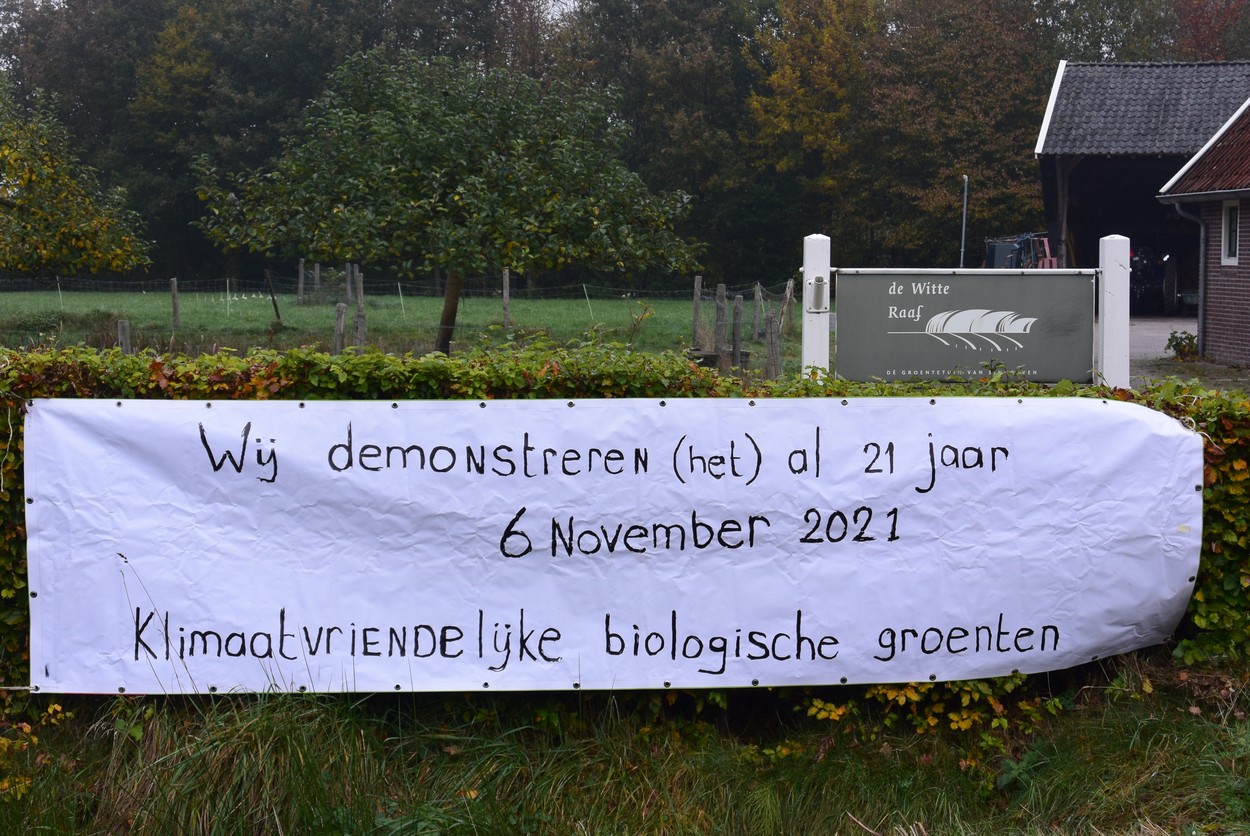 de Witte
Raaf
DE GROENTETUIN VAN
Wij demonstreren (het) al 21 jaar
6 November 2021
Klimaatvriendelijke biologische groenten